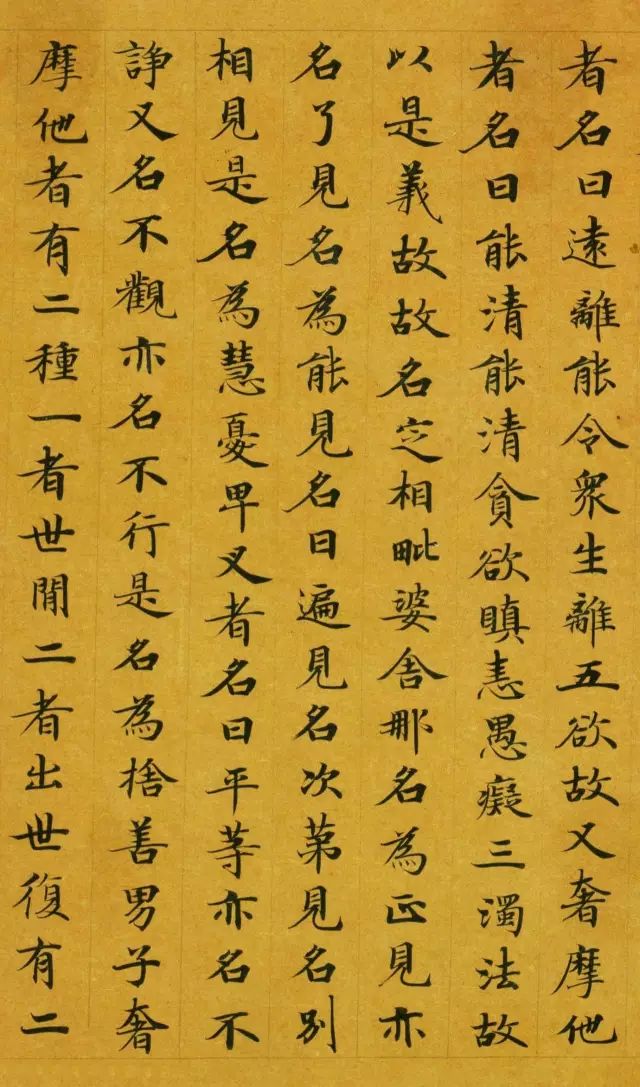 者名曰遠離能令衆生離五欲故又奢摩他
者名曰能清能清貪欲瞋恚愚癡三濁法故
以是義故故名定相毗婆舍那名為正見亦
名了見名為能見名曰遍見名次苐見名別
相見是名為慧憂畢叉者名曰平等亦名不
諍又名不觀亦名不行是名為捨善男子奢
摩他者有二種一者世閒二者出世復有二